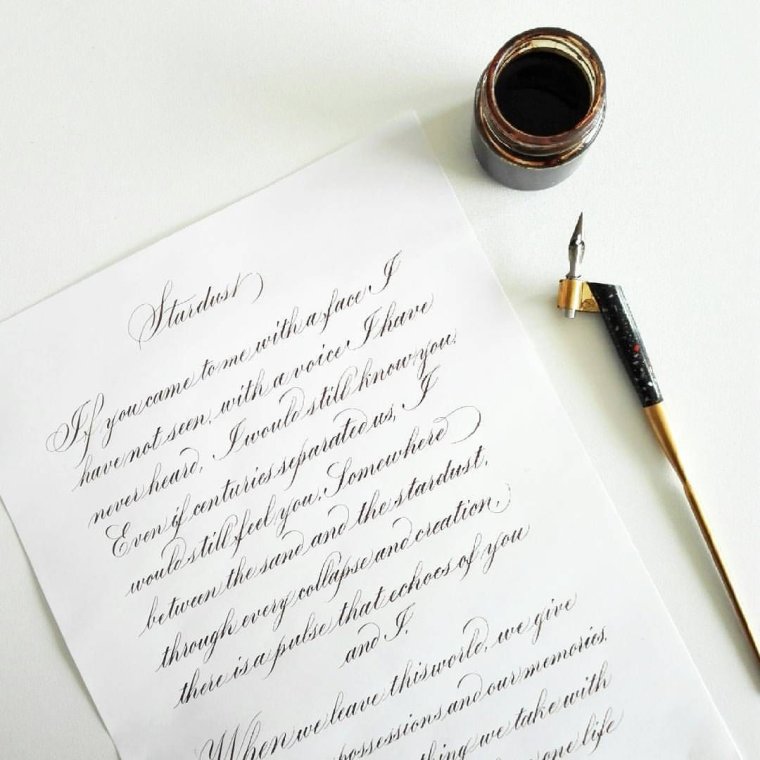 Stardust
If you came to me with a face I
have not seen, with a voice I have
never heard, I would still know you.
Even if centuries separated us, I
would still feel you. Somewhere
between the sand and the stardust,
through every collapse and creation,
there is a pulse that echoes of you
and I.
When we leave this world, we give
possessions and our memories.
we take with
one life